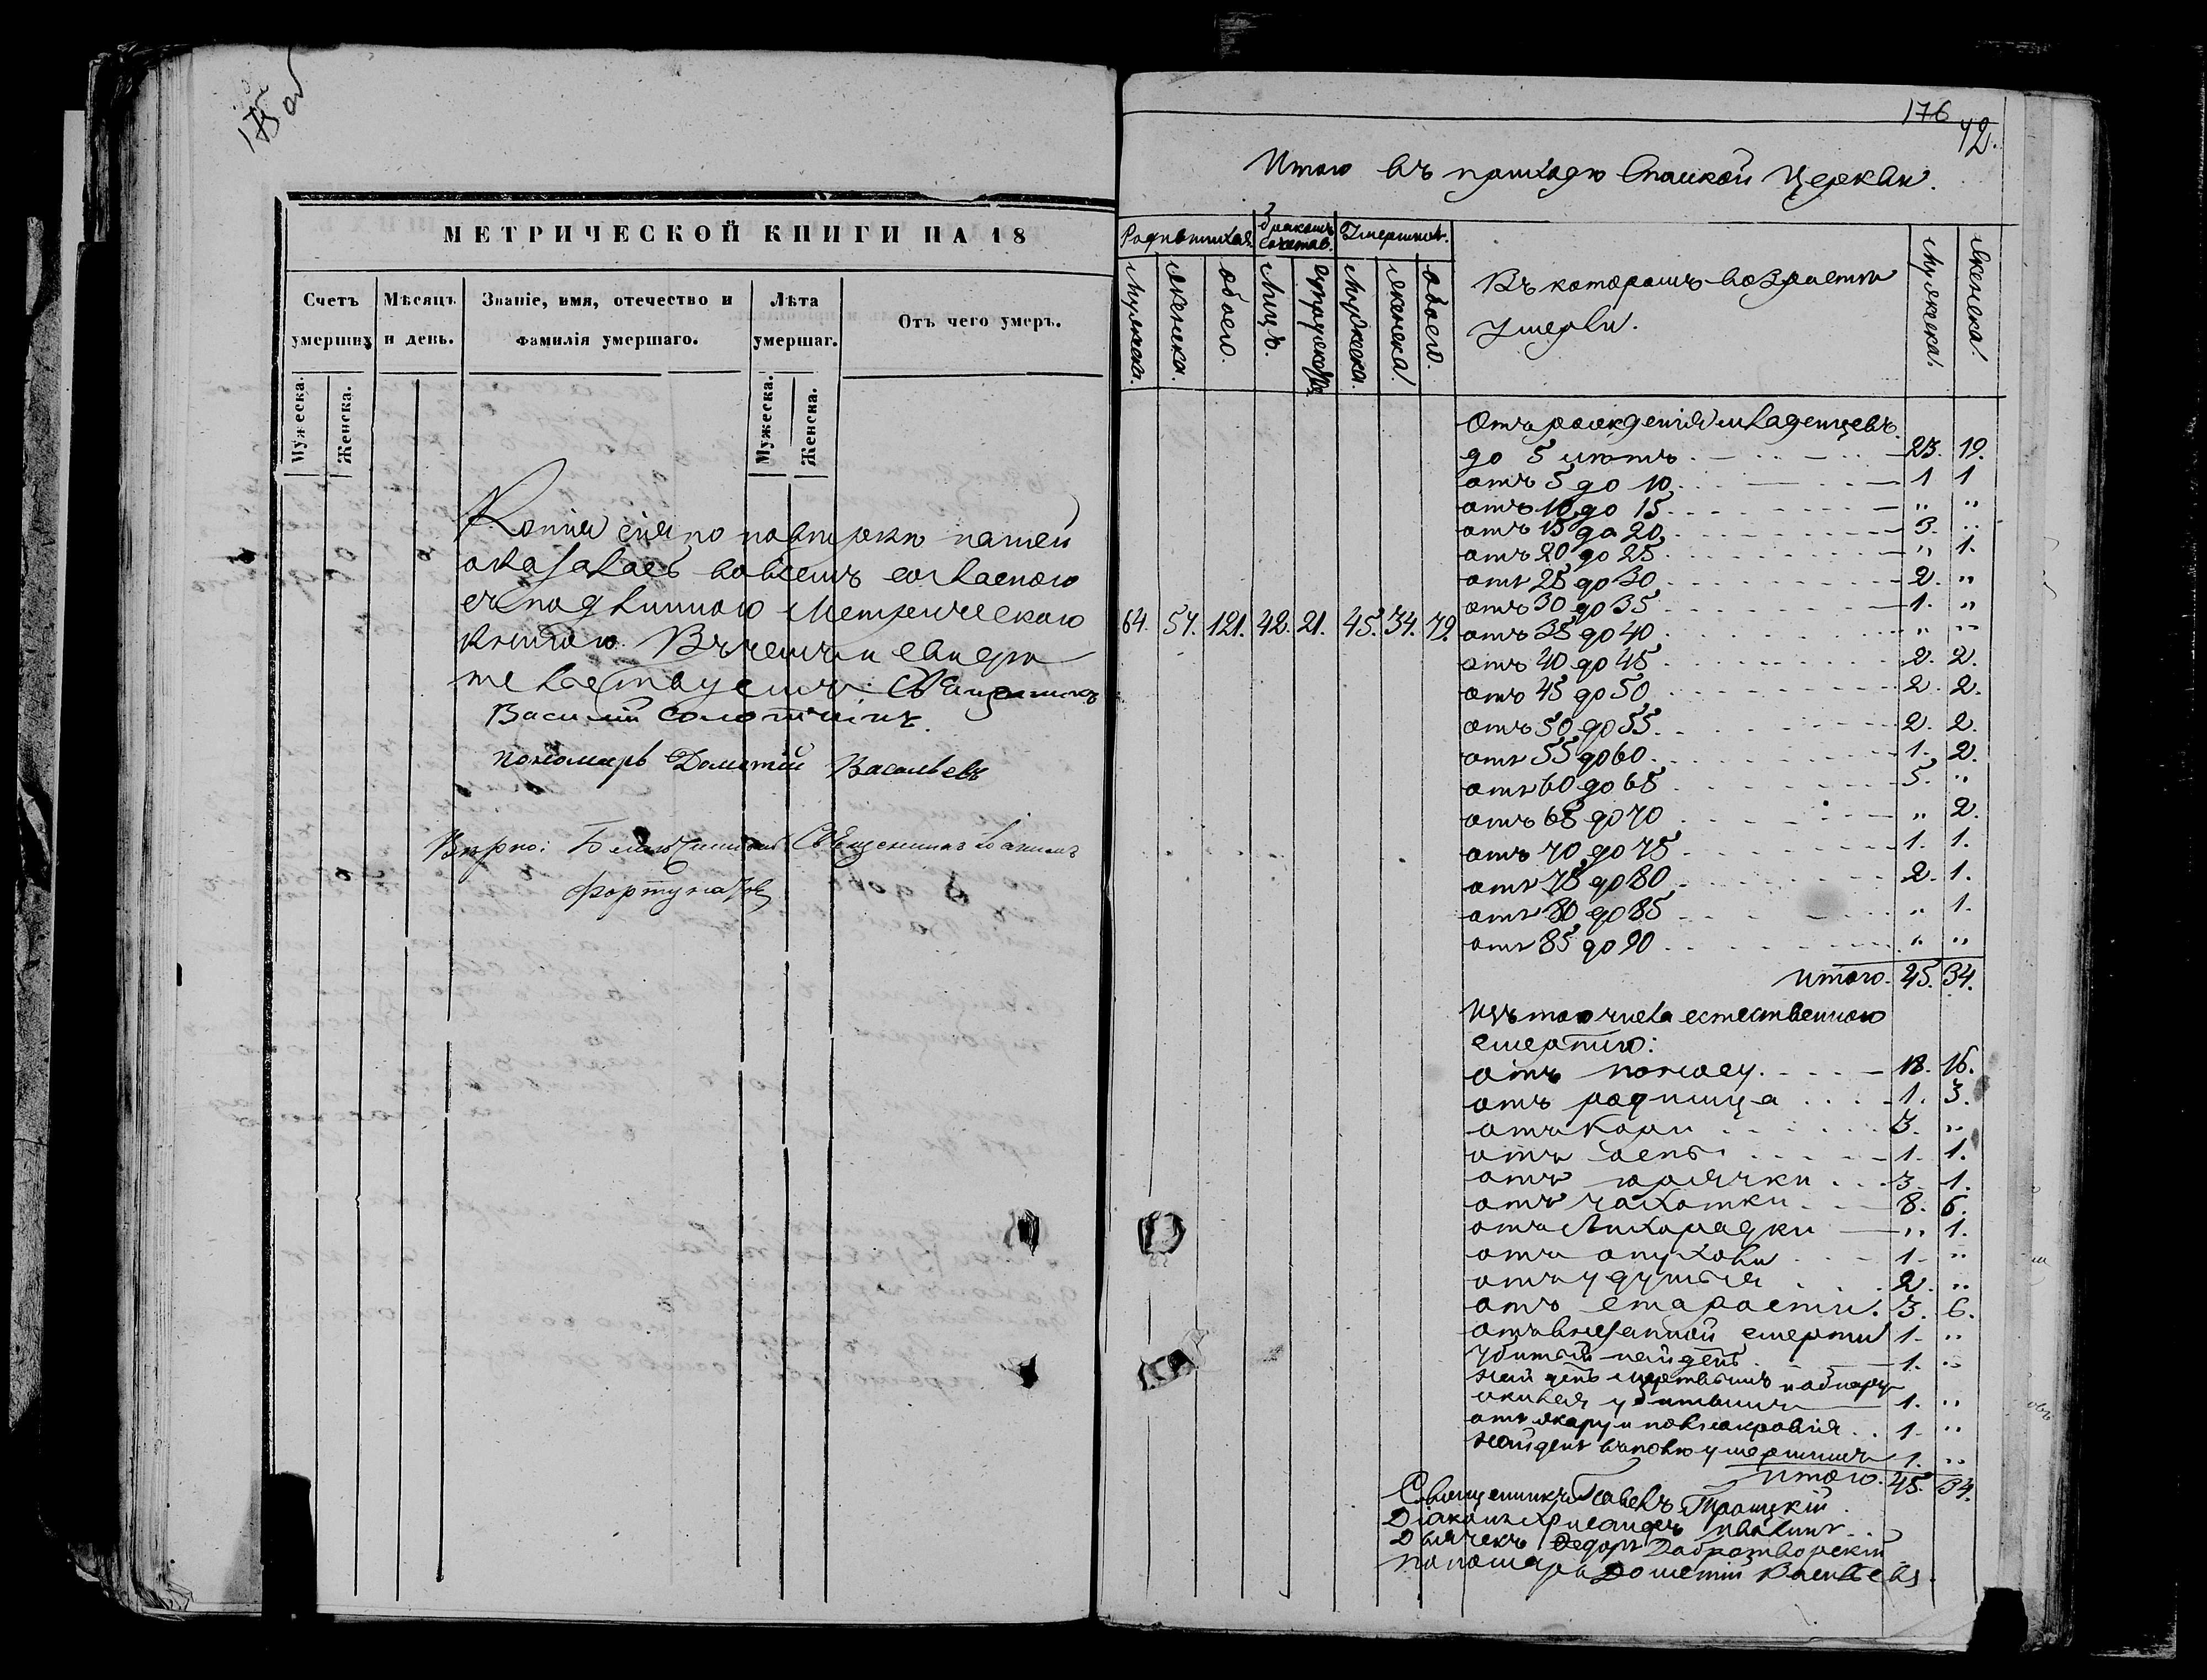 175 об
МЕТРИЧЕСКОЙ КНИГИ НА 18
Счетъ умерших
Мѣсяцъ и день.
Званіе, имя, отечество и фамилія умершаго.
Лѣта умершаг.
Отъ чего умеръ.
Мужеска.
Женска.
Мужеска.
Женска.
Копія сія по повѣркѣ нашей
оказалась вовсемъ согласною
съ подлинною Метрическою
книгою. Въ чемъ и свидѣ
тельствуемъ: Священникъ
Василій Солотчинъ
пономарь Дометій Васильевъ
Вѣрно: Благочинный Священникъ Іоаннъ
Фортунатовъ
176
42.
Итого въ приходѣ Спаской Церкви.
Родившихся.
Бракомъ сочетав.
Умершихъ.
Мужеска.
Женска.
обоего.
Лицъ.
супружествъ
Мужеска.
женска.
обоего.
Въ которомъ возрасти
умерли.
Мужеска.
Женска.
Отъ рожденія младенцевъ
до 5 лѣтъ 23. 19.
отъ 5 до 10 1 1
отъ 10 до 15 " "
отъ 15 до 20 3. "
отъ 20 до 25 " 1.
отъ 25 до 30 2. "
отъ 30 до 35 1. "
64. 57. 121. 42. 21. 45. 34. 79. отъ 35 до 40 " "
отъ 40 до 45 2. 2.
отъ 45 до 50 2. 2.
отъ 50 до 55 2. 2.
отъ 55 до 60 1. 2.
отъ 60 до 65 5. "
отъ 65 до 70 " 2.
отъ 70 до 75 1. 1.
отъ 75 до 80 2. 1.
отъ 80 до 85 " 1.
отъ 85 до 90 " "
итого. 45. 34.
Изъ того числа естественною
смертію:
отъ поносу 18. 16.
отъ родимца 1. 3.
отъ кори 3. "
отъ оспы 1. 1.
отъ горячки 3. 1.
отъ чахотки 8. 6.
отъ лихорадки " 1.
отъ опухоли 1. "
отъ удушья 2. "
отъ старости. 3. 6.
отъ внезапной смерти 1. "
убитый найденъ 1. "
найденъ мертвымъ и обнару
жился убитымъ 1. "
отъ жару и полнокровія 1. "
найденъ въ полѣ умершимъ 1. "
итого. 45. 34.
Священникъ Павелъ Троицкій
Діаконъ Хрисанфъ
Дьячекъ Федоръ Добротворскій
Пономарь Дометій Васильевъ.